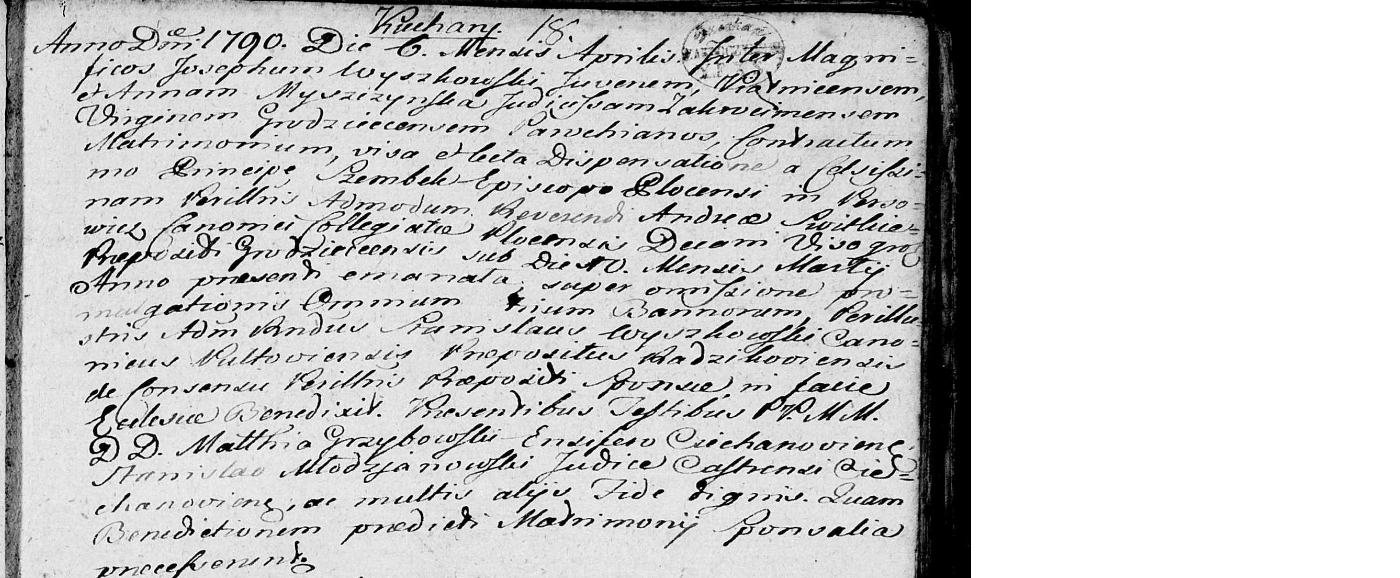 Kuchary. 18.
Anno Dni 1790. Die 6. Mensis Aprilis. Inter Magni=
ficos Josephum Wyszkowski Juvenem, 
et Annam Myszczynska Judicissam Zakroczimensem
Virginem Grodziecensem Parochianos, Contractum
Matrimonium, visa et lecta Dispensatione a Celsissi=
mo Principe Szembek Episcopo Plocensi in Perso=
nam Perillris Admodum Reverendi Andreæ Switkie=
wicz Canonici Collegiatæ Plocensis Decani Visogrod
Præpositi Grodziecensis sub Die 10. Mensis Martij
Anno præsenti emanata, super omissione pro=
mulgationis Omnium trium Bannorum, Perillu=
stris Adm Rndus Stanislaus Wyszkowski Cano=
nicus Pultoviensis Præpositus Radzikoviensis
de Consensu Perillris Præpositi Sponsæ in facie
Eclesiæ Benedixit. Presentibus Testibus P. M M.
D D. Matthia Grzybowski Ensifero Ciechanoviens,
Stanislao Młodzjanowski Judice Castrensi Cie=
chanoviens, ac multis alijs Fide dignis. Quam
Benedictionem prædicti Matrimonij Sponsalia
præcesserunt.